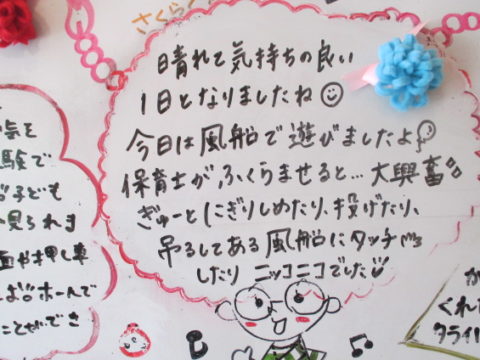 さくらぐ
晴れて気持ちの良い
1日となりましたね
今日は風船で遊びましたよ
保育士がふくらませると…大興奮
ぎゅーとにぎりしめたり、投げたり、
吊るしてある風船にタッチ
したり ニッコニコでした
気を
験で
子ども
見られま
面や押し車
ボールで
ことができ
が
くれた
タライ